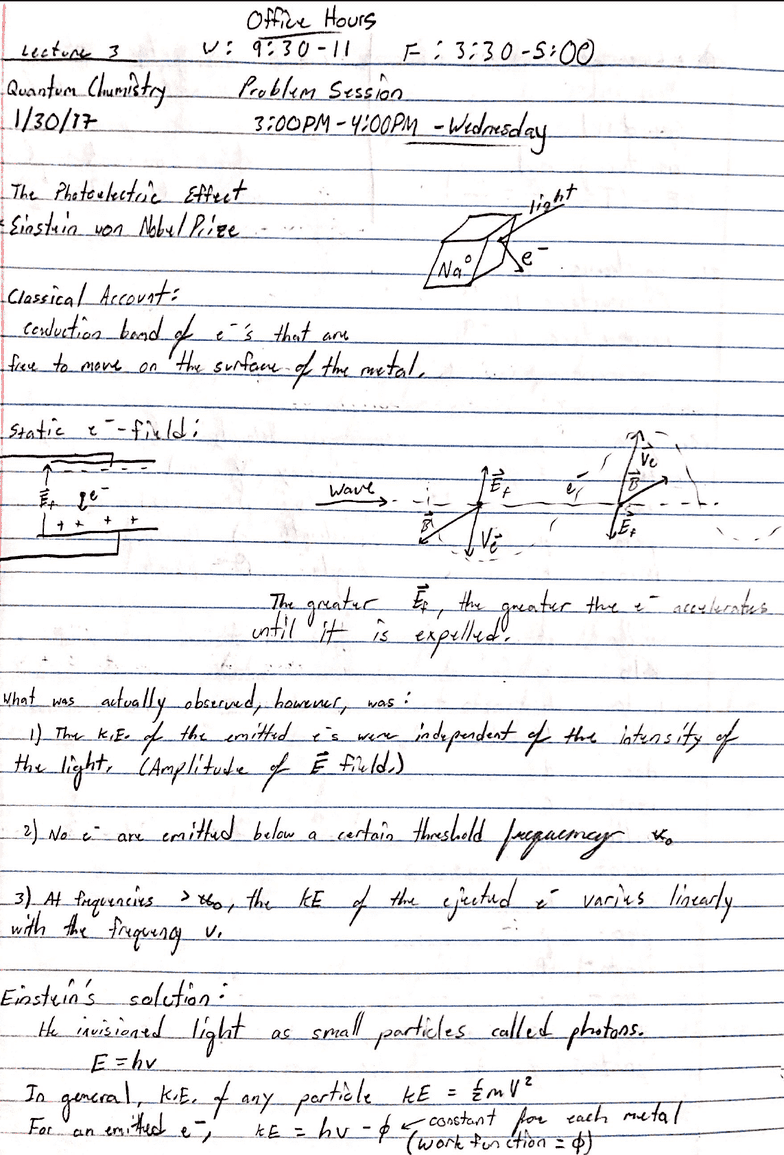 Office Hours
Lecture 3 W: 9:30-11 F: 3:30-5:00
Quantum Chumistry Problem Session
1/30/17 3:00PM-4:00PM - Wednesday
The Photoelectric Effect
Einstein won Nobel Prize
light
e⁻
Na⁰
Classical Account:
conduction band of e⁻'s that are
free to move on the surface of the metal.
Static e⁻-field:
- - -
E⃗f e⁻
+ + + +
Wave
B⃗ E⃗f Ve⃗
e⁻
V⃗e B⃗ E⃗f
The greater E⃗f, the greater the e⁻ accelerates
until it is expelled.
What was actually observed, however, was:
1) The K.E. of the emitted e⁻s were independent of the intensity of
the light. (Amplitude of E⃗ field.)
2) No e⁻ are emitted below a certain threshold frequency ν₀
3) At frequencies > ν₀, the KE of the ejected e⁻ varies linearly
with the frequency ν.
Einstein's solution:
He invisioned light as small particles called photons.
E = hν
In general, K.E. of any particle KE = ½mV²
For an emitted e⁻, KE = hν - ϕ ← constant for each metal
(work function = ϕ)